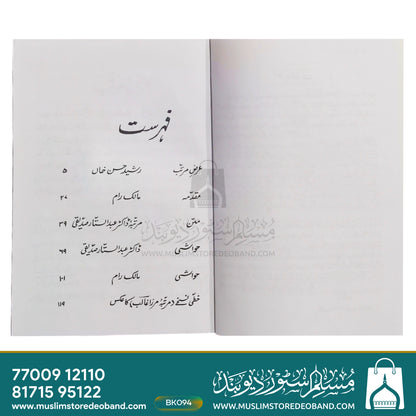 فہرست
عرض مرتب رشید حسن خاں ۵
مقدمہ مالک رام ۲۷
متن مرتبہ ڈاکٹر عبدالستار صدیقی ۳۹
حواشی ڈاکٹر عبدالستار صدیقی ۶۹
حواشی مالک رام ۱۰۱
خطی نسخے (مرتبہ مرزا غالب) کا عکس ۱۱۹
مسلم سٹور دیوبند
WWW.MUSLIMSTOREDEOBAND.COM
77009 12110
81715 95122
BK094
www.muslimstoredeoband.com
مسلم سٹور دیوبند
WWW.MUSLIMSTOREDEOBAND.COM